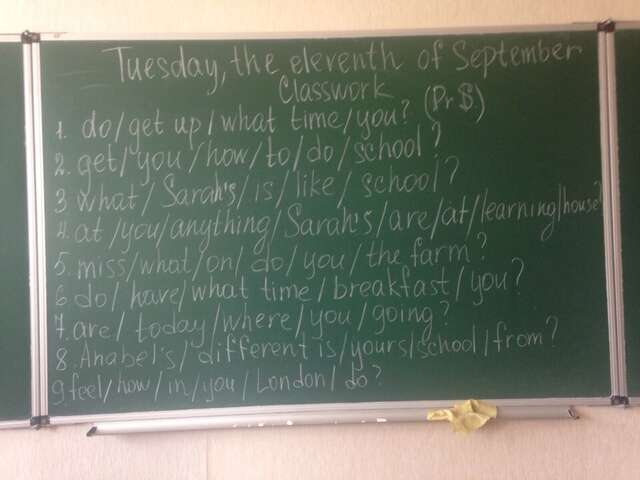 Tuesday, the eleventh of September
Classwork
1. do/get up/what time/you? (Pr S)
2. get/you/how/to/do/school?
3 what/Sarah's/is/like/school?
4. at/you/anything/Sarah's/are/at/learning/house?
5. miss/what/on/do/you/the farm?
6 do/have/what time/breakfast/you?
7. are/today/where/you/going?
8. Anabel's/different is/yours/school/from?
9. feel/how/in/you/London/do?